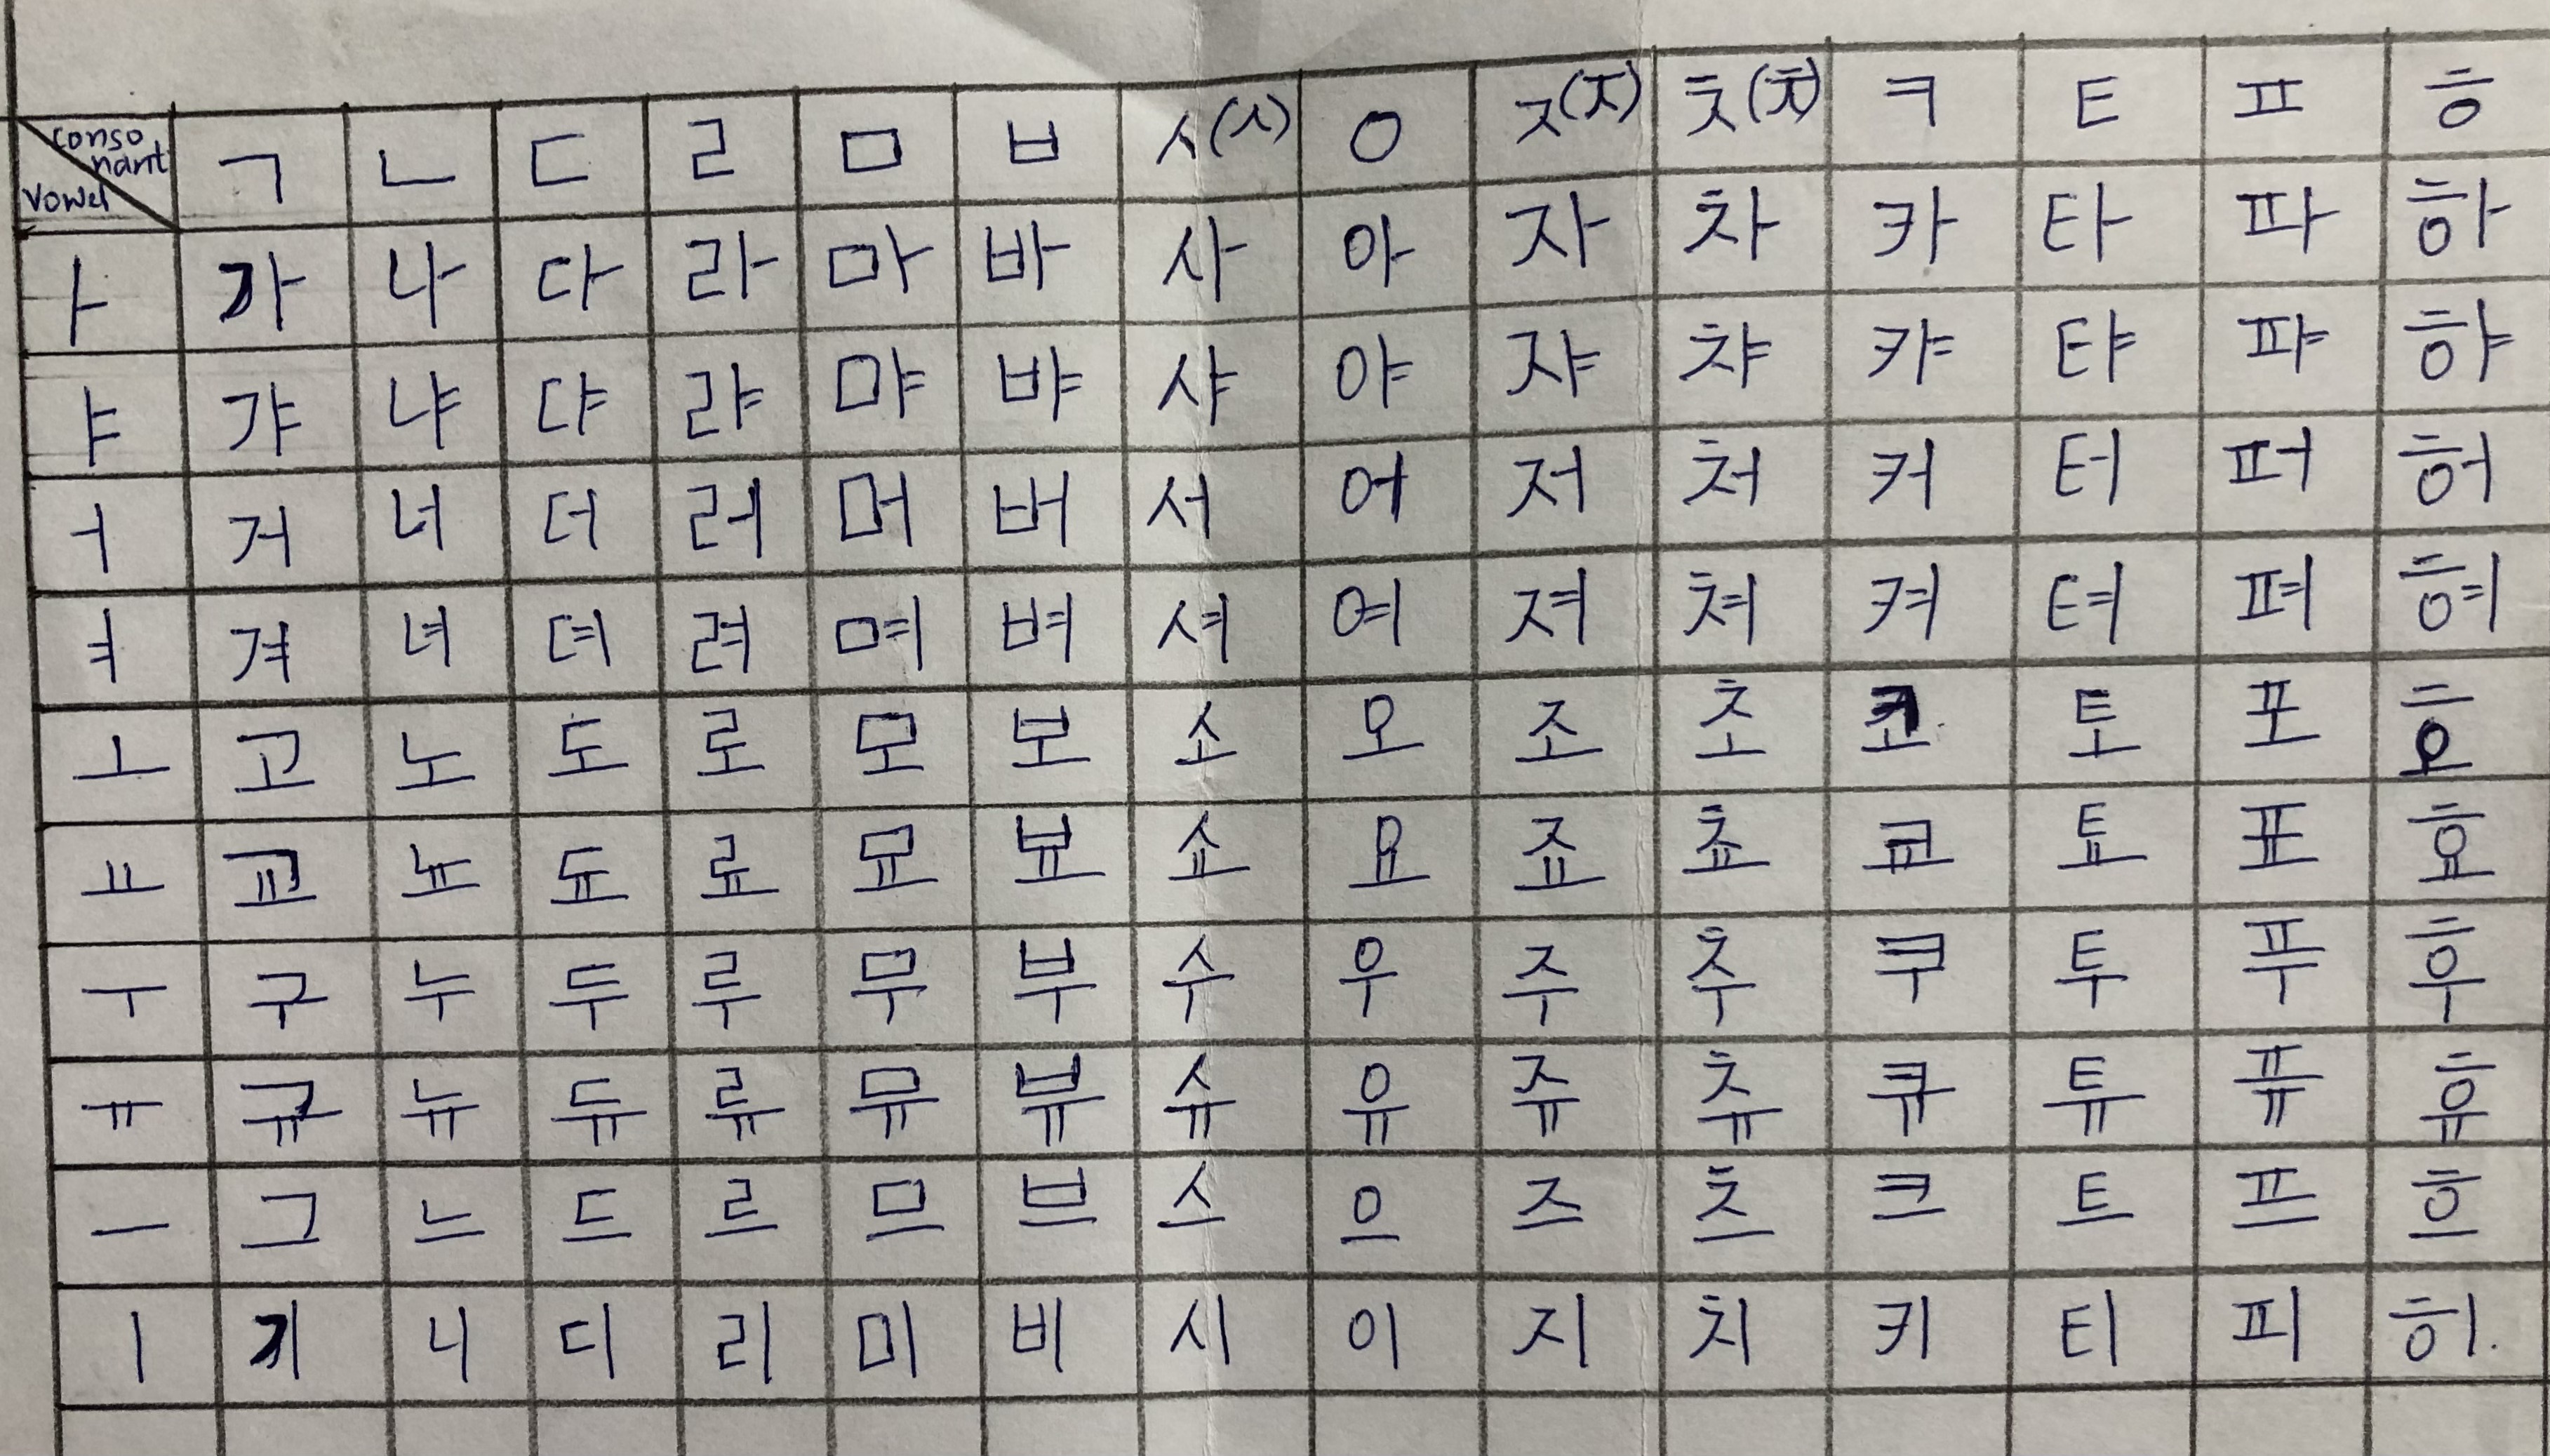 consonant vowel ㄱ ㄴ ㄷ ㄹ ㅁ ㅂ ㅅ(ㅅ) ㅇ ㅈ(ㅈ) ㅊ(ㅊ) ㅋ ㅌ ㅍ ㅎ
ㅏ 가 나 다 라 마 바 사 아 자 차 카 타 파 하
ㅑ 갸 냐 댜 랴 먀 뱌 샤 야 쟈 챠 캬 탸 퍄 햐
ㅓ 거 너 더 러 머 버 서 어 저 처 커 터 퍼 허
ㅕ 겨 녀 뎌 려 며 벼 셔 여 져 쳐 켜 텨 펴 혀
ㅗ 고 노 도 로 모 보 소 오 조 초 코 토 포 호
ㅛ 교 뇨 됴 료 묘 뵤 쇼 요 죠 쵸 쿄 툐 표 효
ㅜ 구 누 두 루 무 부 수 우 주 추 쿠 투 푸 후
ㅠ 규 뉴 듀 류 뮤 뷰 슈 유 쥬 츄 큐 튜 퓨 휴
ㅡ 그 느 드 르 므 브 스 으 즈 츠 크 트 프 흐
ㅣ 기 니 디 리 미 비 시 이 지 치 키 티 피 히.